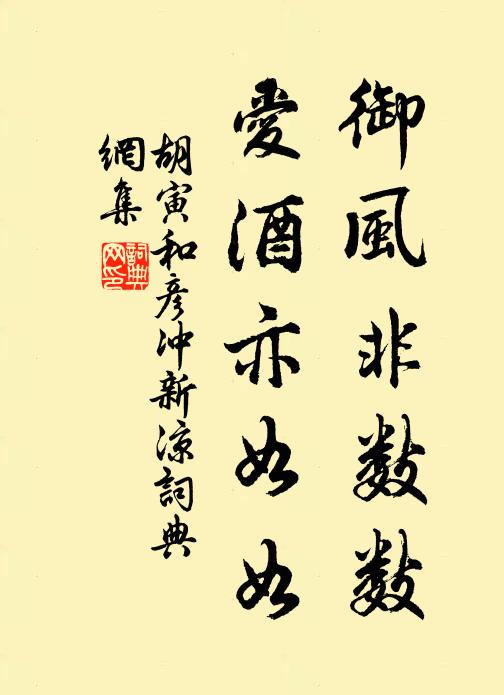 御風非數數
愛酒亦如如
胡寅和彥冲新涼詞典
網集
詞典
网印